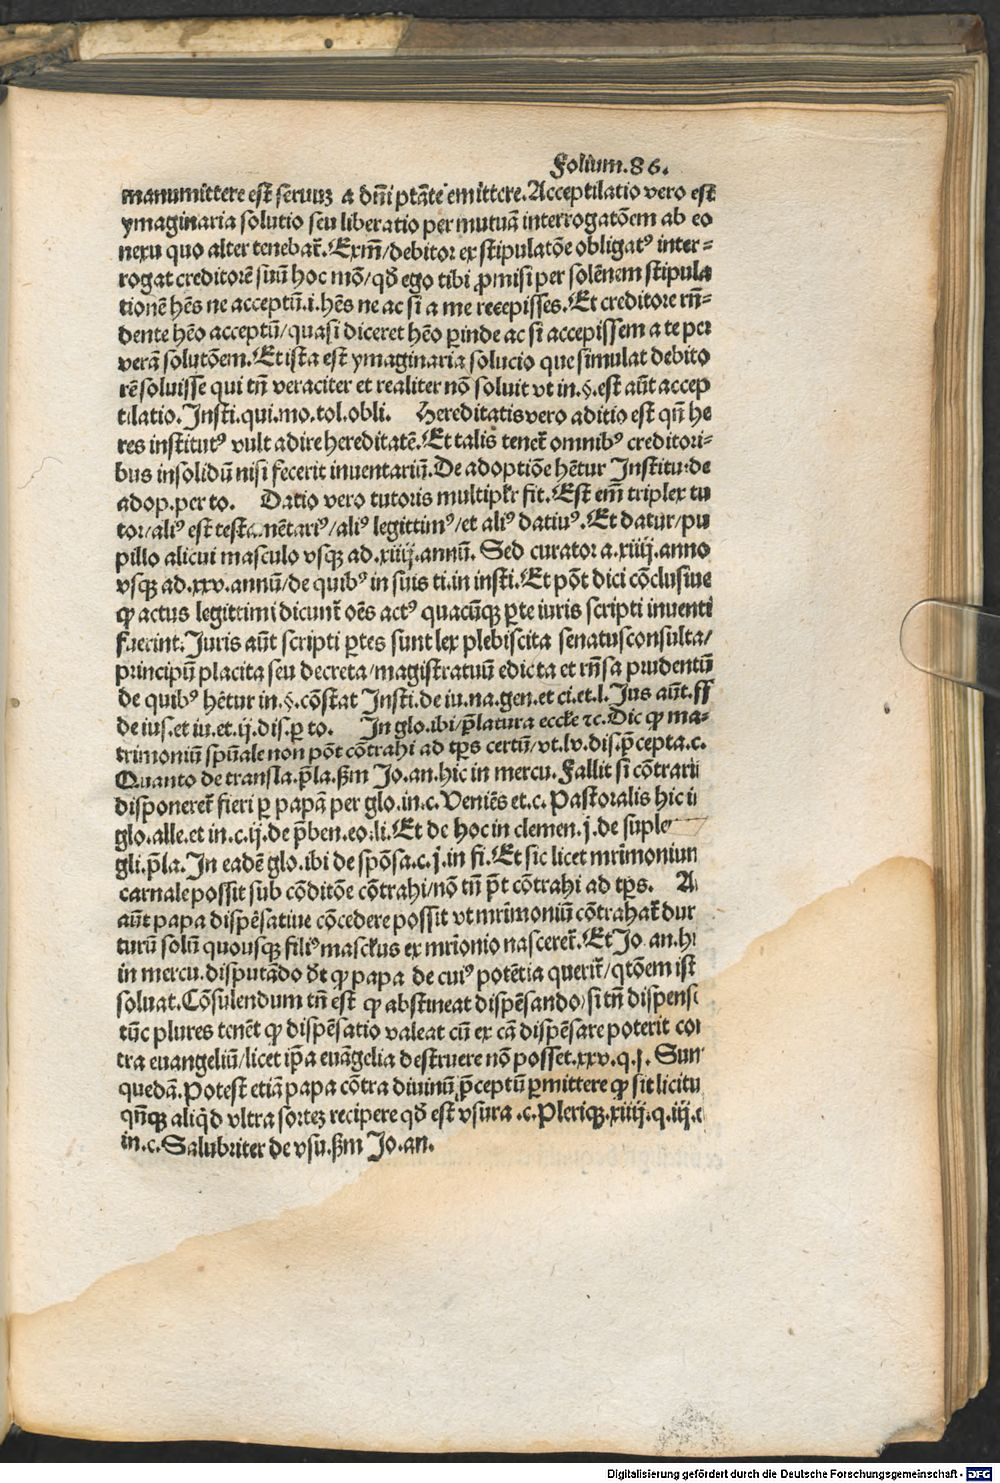 Folium.86.
manumittere est̄ seruuꝫ a dn̄i ptāte emittere. Acceptilatio vero est
ymaginaria solutio seu liberatio per mutuā interrogatōem ab eo
nexu quo alter tenebat̄. Exm̄/debitor ex stipulatōe obligatꝰ inter⸗
rogat creditorē suū hoc mō/qđ ego tibi ꝓmisi per solēnem stipula
tionē hēs ne acceptū.i.hēs ne ac si a me recepisses. Et creditore rn̄⸗
dente hēo acceptū/quasi diceret hēo ꝑinde ac si accepissem a te per
verā solutōem. Et ista est ymaginaria solucio que simulat debito
rē soluisse qui tn̄ veraciter et realiter nō soluit vt in.§.est aūt accep
tilatio. Insti.qui.mo.tol.obli. Hereditatis vero aditio est qn̄ he
res institutꝰ vult adire hereditatē. Et talis tenet̄ omnibꝰ creditori⸗
bus insolidū nisi fecerit inuentariū. De adoptiōe hētur Institu.de
adop.per to. Datio vero tutoris multipłr fit. Est em̄ triplex tu
tor/aliꝰ est testamētariꝰ/aliꝰ legittimꝰ/et aliꝰ datiuꝰ. Et datur/pu
pillo alicui masculo vsqꝫ ad.xiiij.annū. Sed curator a.xiiij.anno
vsqꝫ ad.xxv.annū/de quibꝰ in suis ti.in insti. Et pōt dici cōclusiue
ꝙ actus legittimi dicunt̄ oēs actꝰ quacūqꝫ ꝑte iuris scripti inuenti
fuerint. Juris aūt scripti ꝑtes sunt lex plebiscita senatusconsulta/
principū placita seu decreta/magistratuū edicta et rn̄sa prudentū
de quibꝰ hētur in.§.cōstat Insti.de iu.na.gen.et ci.et.l. Jus aūt.ff
de ius.et iu.et.ij.dis.ꝑ to. In glo.ibi/p̄latura eccłe ⁊c. Dic ꝙ ma⸗
trimoniū spūale non pōt cōtrahi ad tp̄s certū/vt.lv.dis.p̄cepta.c.
Quanto de transla.p̄la.ßm Jo.an.hic in mercu. Fallit si cōtrarū
disponeret̄ fieri ꝑ papā per glo.in.c. Veniēs et.c. Pastoralis hic ii
glo.alle.et in.c.ij.de p̄ben.eo.li. Et de hoc in clemen.j.de suple
gli.p̄la. In eadē glo.ibi de spōsa.c.j.in fi. Et sic licet mr̄imoniun
carnale possit sub cōditōe cōtrahi/nō tn̄ p̄t cōtrahi ad tp̄s. A
aūt papa dispēsatiue cōcedere possit vt mr̄imoniū cōtrahat̄ dur
turū solū quousqꝫ filiꝰ mascłus ex mr̄ionio nasceret̄. Et Jo.an.hi
in mercu.disputādo đt ꝙ papa de cuiꝰ potētia querit̄/q̄tōem ist
soluat. Cōsulendum tn̄ est ꝙ abstineat dispēsando/si tn̄ dispens
tūc plures tenēt ꝙ dispēsatio valeat cū ex cā dispēsare poterit con
tra euangeliū/licet ip̄a euāgelia destruere nō posset.xxv.q.j. Sun
quedā. Potest etiā papa cōtra diuinū p̄ceptū ꝑmittere ꝙ sit licitu
qn̄qꝫ aliq̇d vltra sortez recipere qđ est vsura .c. Pleriqꝫ.xiiij.q.iij.
in.c. Salubriter de vsu.ßm Jo.an.
Digitalisierung gefördert durch die Deutsche Forschungsgemeinschaft - DFG